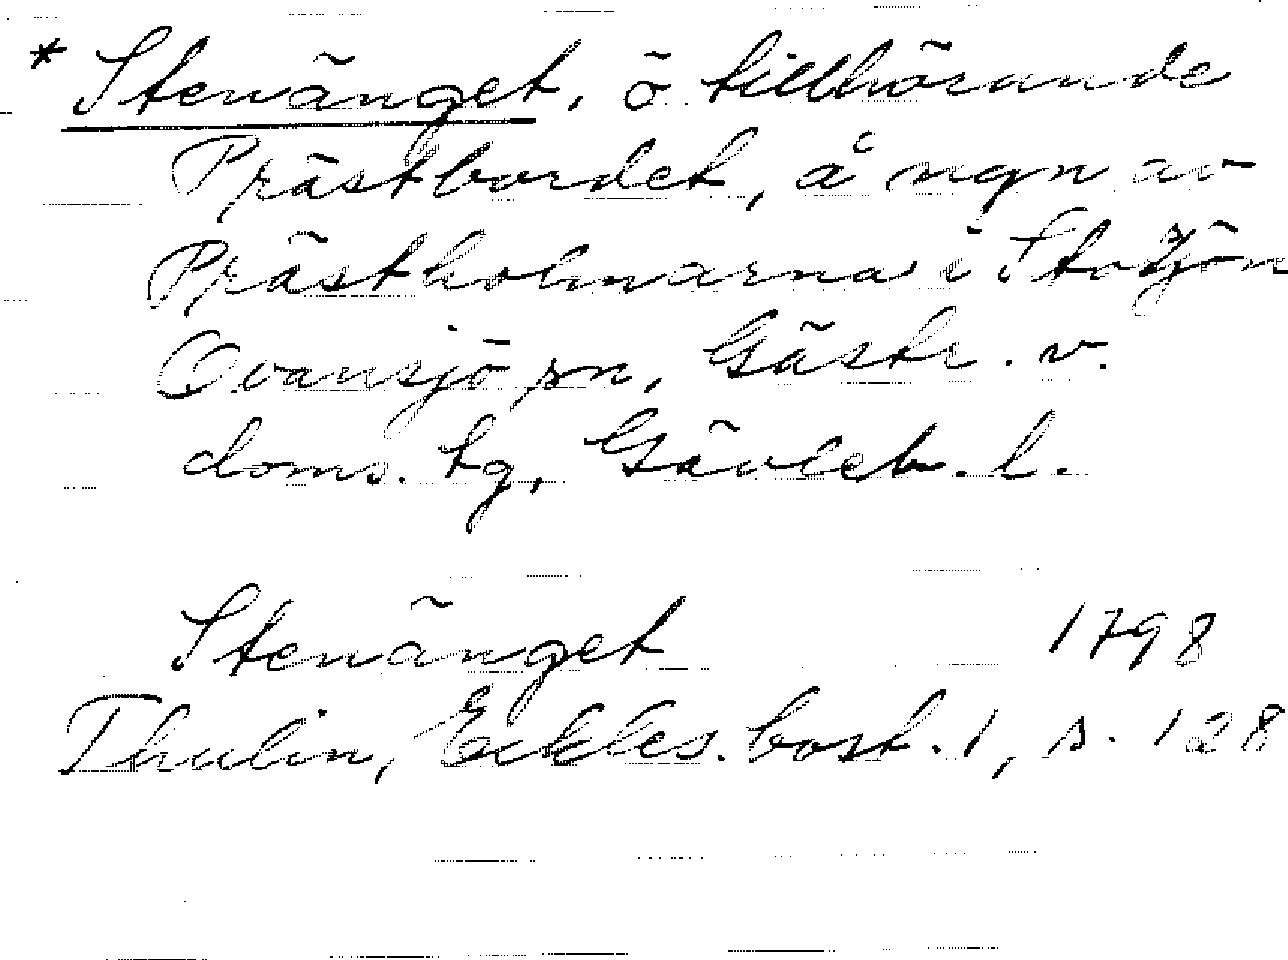 * Stenänget, ö tillhörande
Prästbordet, å ngn av
Prästholmarna i Storsjön
Ovansjö sn, Gästr. v.
doms. tg, Gävleb. l.
Stenänget 1798
Thulin, Eckles. bost. 1, s. 128